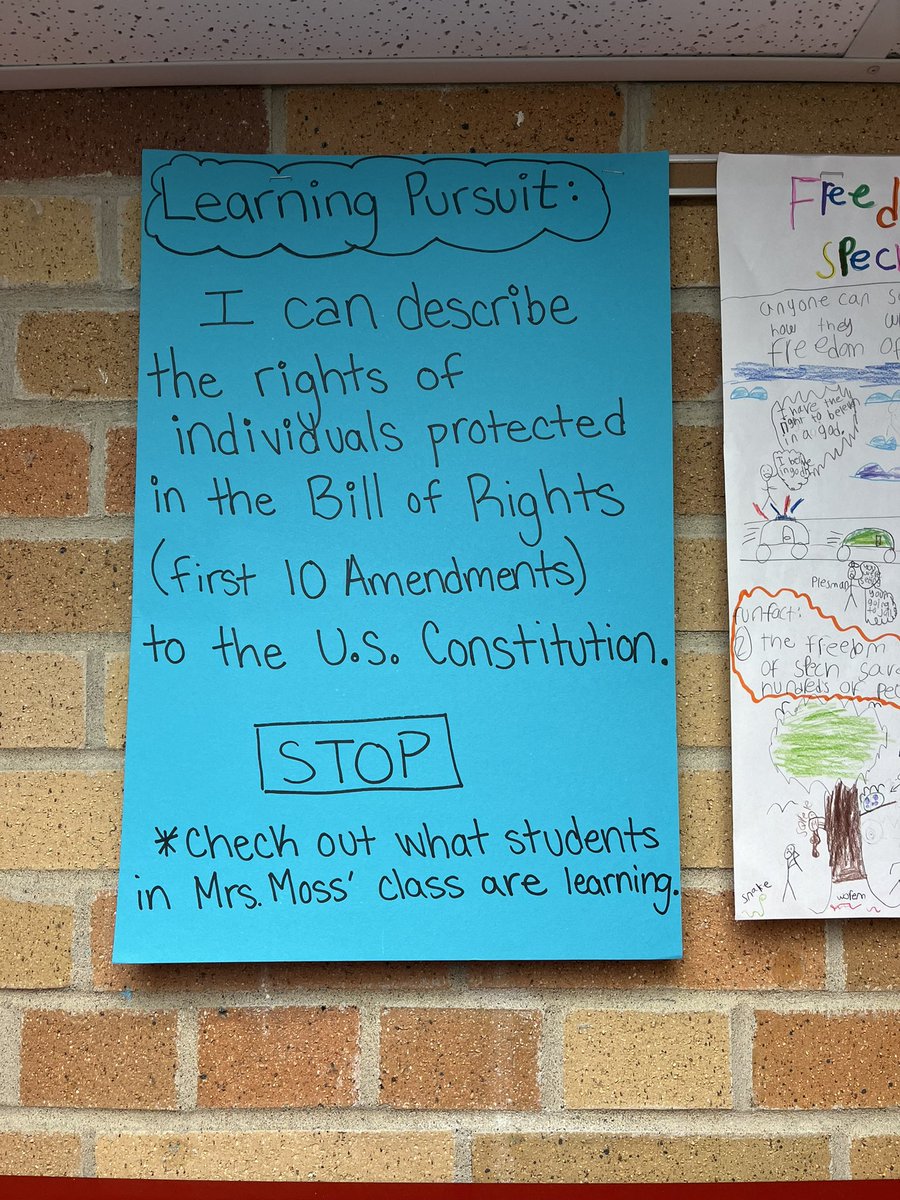 Learning Pursuit:
I can describe
the rights of
individuals protected
in the Bill of Rights
(first 10 Amendments)
to the U.S. Constitution.
STOP
*Check out what students
in Mrs. Moss' class are learning.
Freed
Spec
anyone can s
how they w
freedom of
I have the
right to believ
in a god.
Plesman
funfact:
the freedom
of spech sav
hundreds or pe
snake
worem